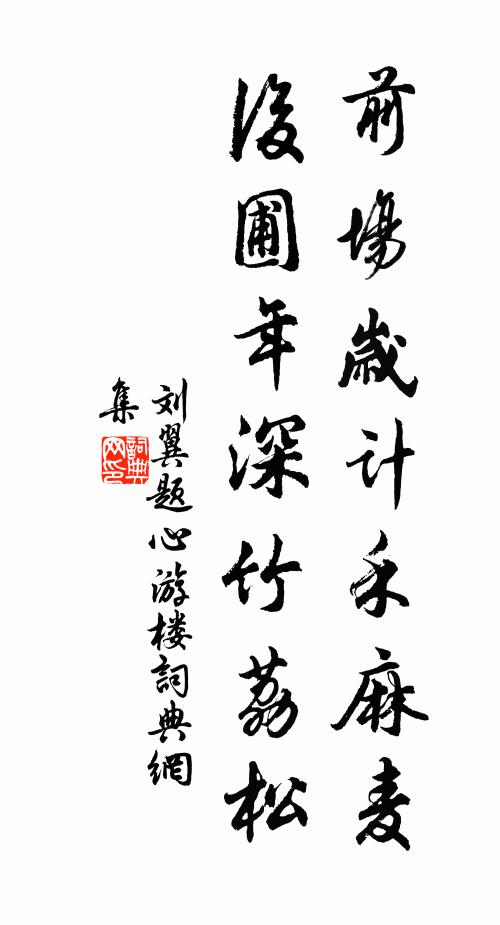 前場歲计禾麻麦
後圃年深竹荔松
刘翼题心游楼詞典網
集
詞典
网印